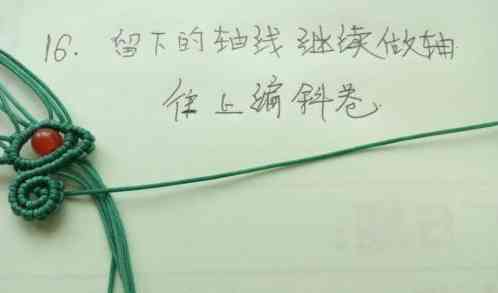 16. 留下的轴线继续做轴
往上编斜卷